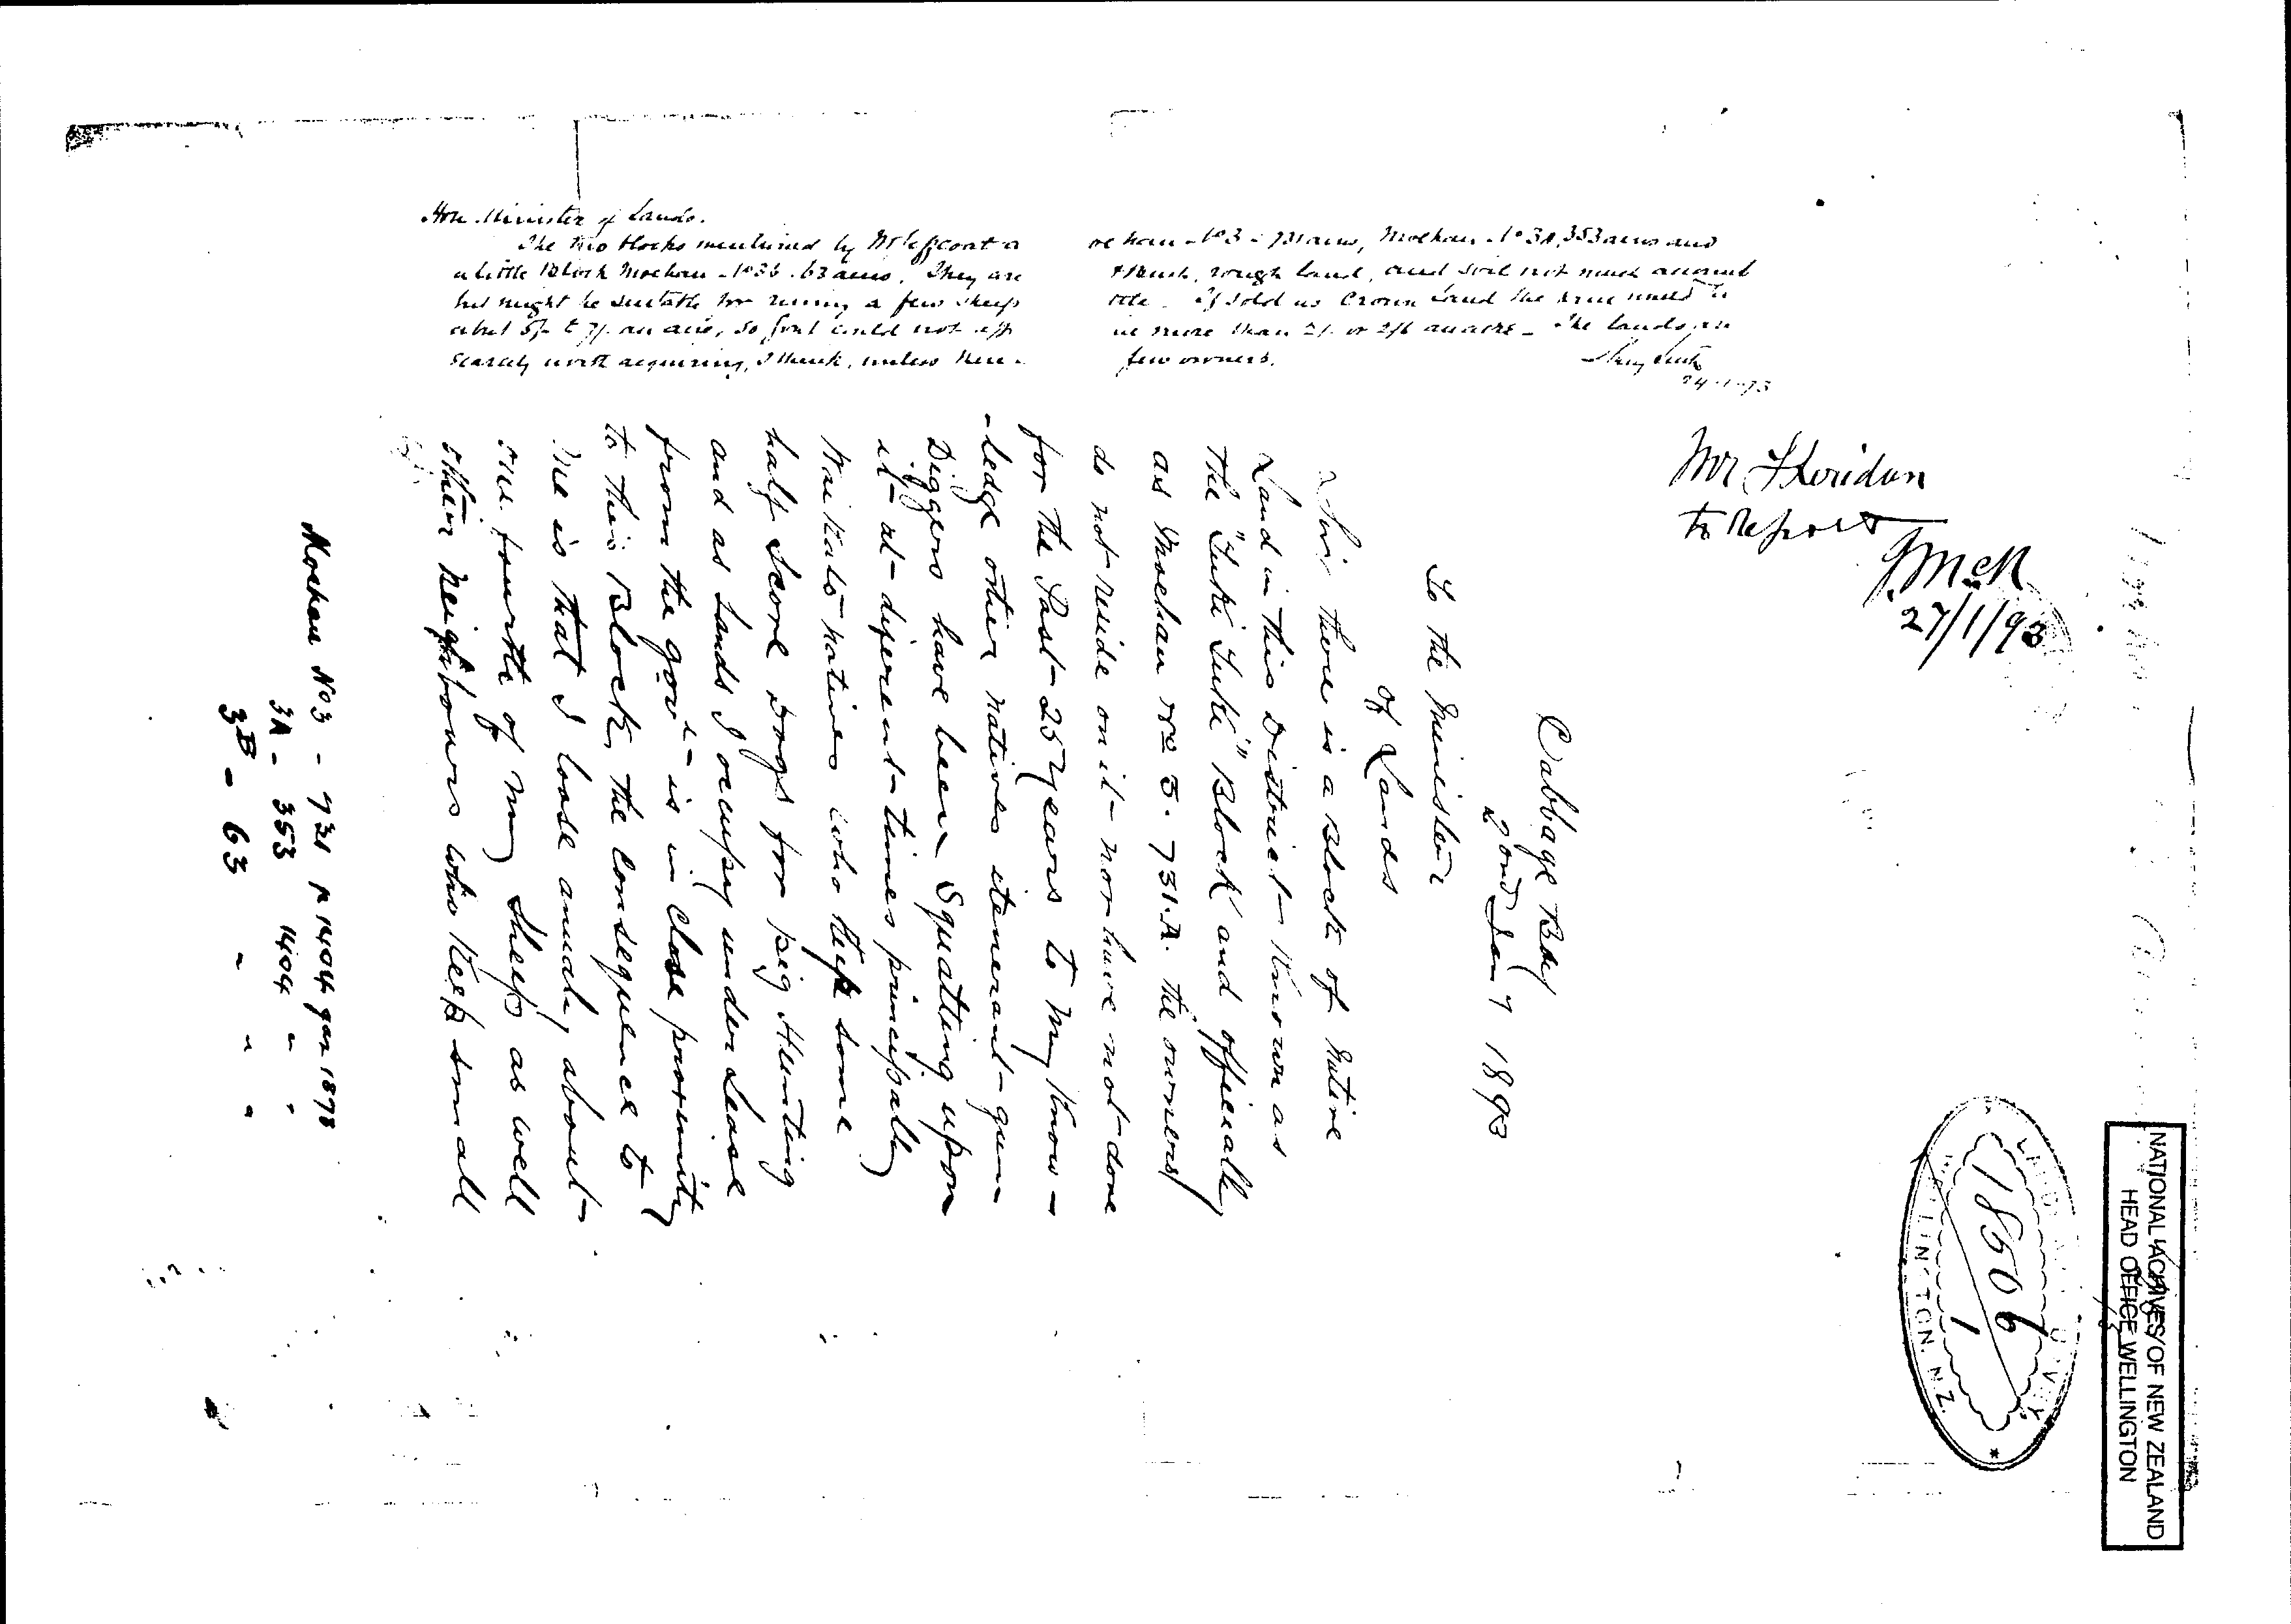 Hon. Minister of Lands.
The two blocks mentioned by Mr
a little Block Moehau No 3b. 63 acres. They are
but might be suitable for running a few sheep
about 5/- to 7/- an acre, so Govt could not
scarcely worth acquiring, I think, unless
No 3 - 731 acres, Moehau No 3A, 353 acres and
rough land, and soil not much account
If sold as Crown Land the
more than 2/- or 2/6 an acre - The lands
few owners.
24-1-93
Mr Sheridan
to Report
J.McK
27/1/93
Cabbage Bay
2ond Jany 1893
To the Minister
of Lands
Sir there is a Block of Native
Land in this District Known as
The "Tuki Tuki" Block and officeally
as Moehau No 3. 731.A. the owners
do not reside on it nor have not done
for the Past 25 years to my Know-
-ledge other natives itenerant gum
Diggers have been Squatting upon
it at diferent times principally
Waikato natives who keep some
half Score Dogs for pig Hunting
and as Lands I occupy under Lease
from the govt is in close proximity
to this Block, the consequence to
me is that I loose anualy about
one fourth of my Sheep as well
other neighbours who keep small
Moehau No 3 - 731 p 1404 gaz 1878
3A - 353 1404 " "
3B - 63 " " "
18506
1
WELLINGTON. N.Z.
NATIONAL ARCHIVES OF NEW ZEALAND
HEAD OFFICE WELLINGTON